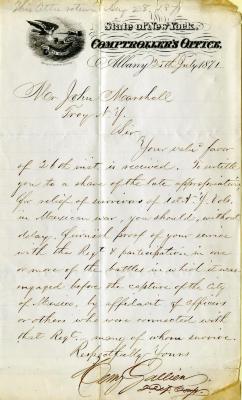 This letter returned Aug 28, 1871
State of New York.
COMPTROLLER'S OFFICE,
Albany 25th July 1871.
Mr John Marshall
Troy N. Y.
Sir
Your valu. favor
of 24th inst. is received. To entitle
you to a share of the late appropriation
for relief of survivors of 1st N. Y. Vols.
in Mexican war, you should, without
delay, furnish proof of your service
with the Regt. & participation in one
or more of the battles in which it was
engaged before the capture of the City
of Mexico, by affidavit of officers
or others who were connected with
that Regt. many of whom survive.
Respectfully Yours
Henry Gallien
2d Dep. Comp.